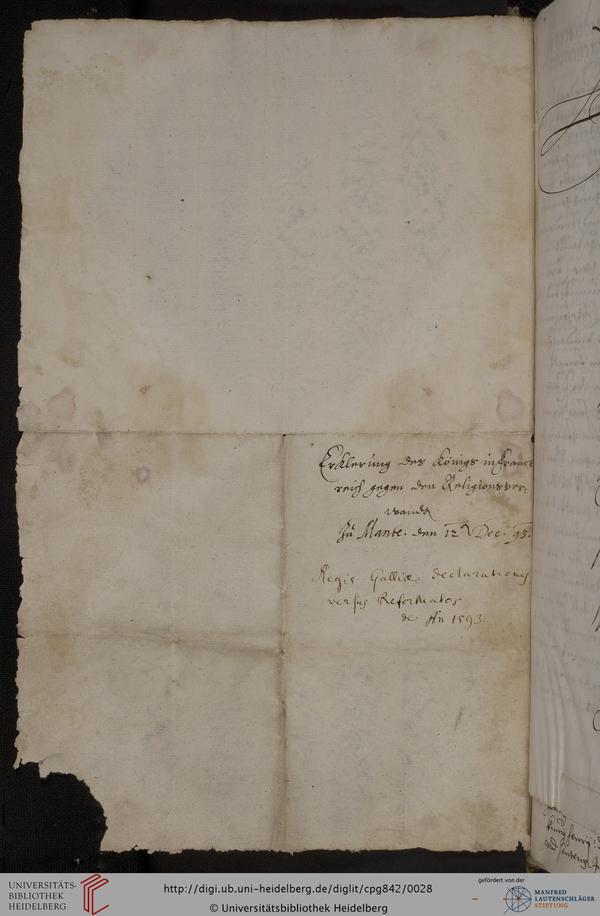 Erklerung des Königs in Franck
reich gegen den Religionsver=
wandten
Zu Mante. den 12 Dec. 93.
Regis Galliæ declarationes
versus Reformatos
de An 1593.
UNIVERSITÄTS-
BIBLIOTHEK
HEIDELBERG
http://digi.ub.uni-heidelberg.de/diglit/cpg842/0028
© Universitätsbibliothek Heidelberg
gefördert von der
MANFRED
LAUTENSCHLÄGER
STIFTUNG